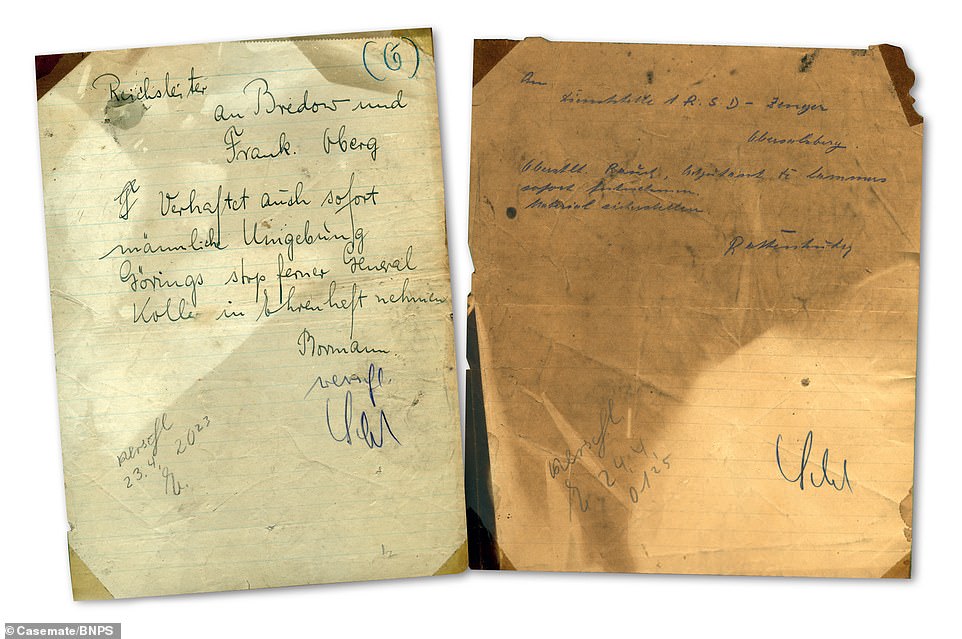 (6)
Reichsleiter
an Bredow und
Frank. Oberg
Verhaftet auch sofort
männliche Umgebung
Görings stop ferner General
Kolle in Ehrenhaft nehmen
Bormann.
verschl.
verschl 2023
23.4.
An
Dienststelle 1 R.S.D - Zenger
Obersalzberg.
sofort festnehmen.
Material sicherstellen
Rattenhuber
verschl
24.4.
0125
©Casemate/BNPS